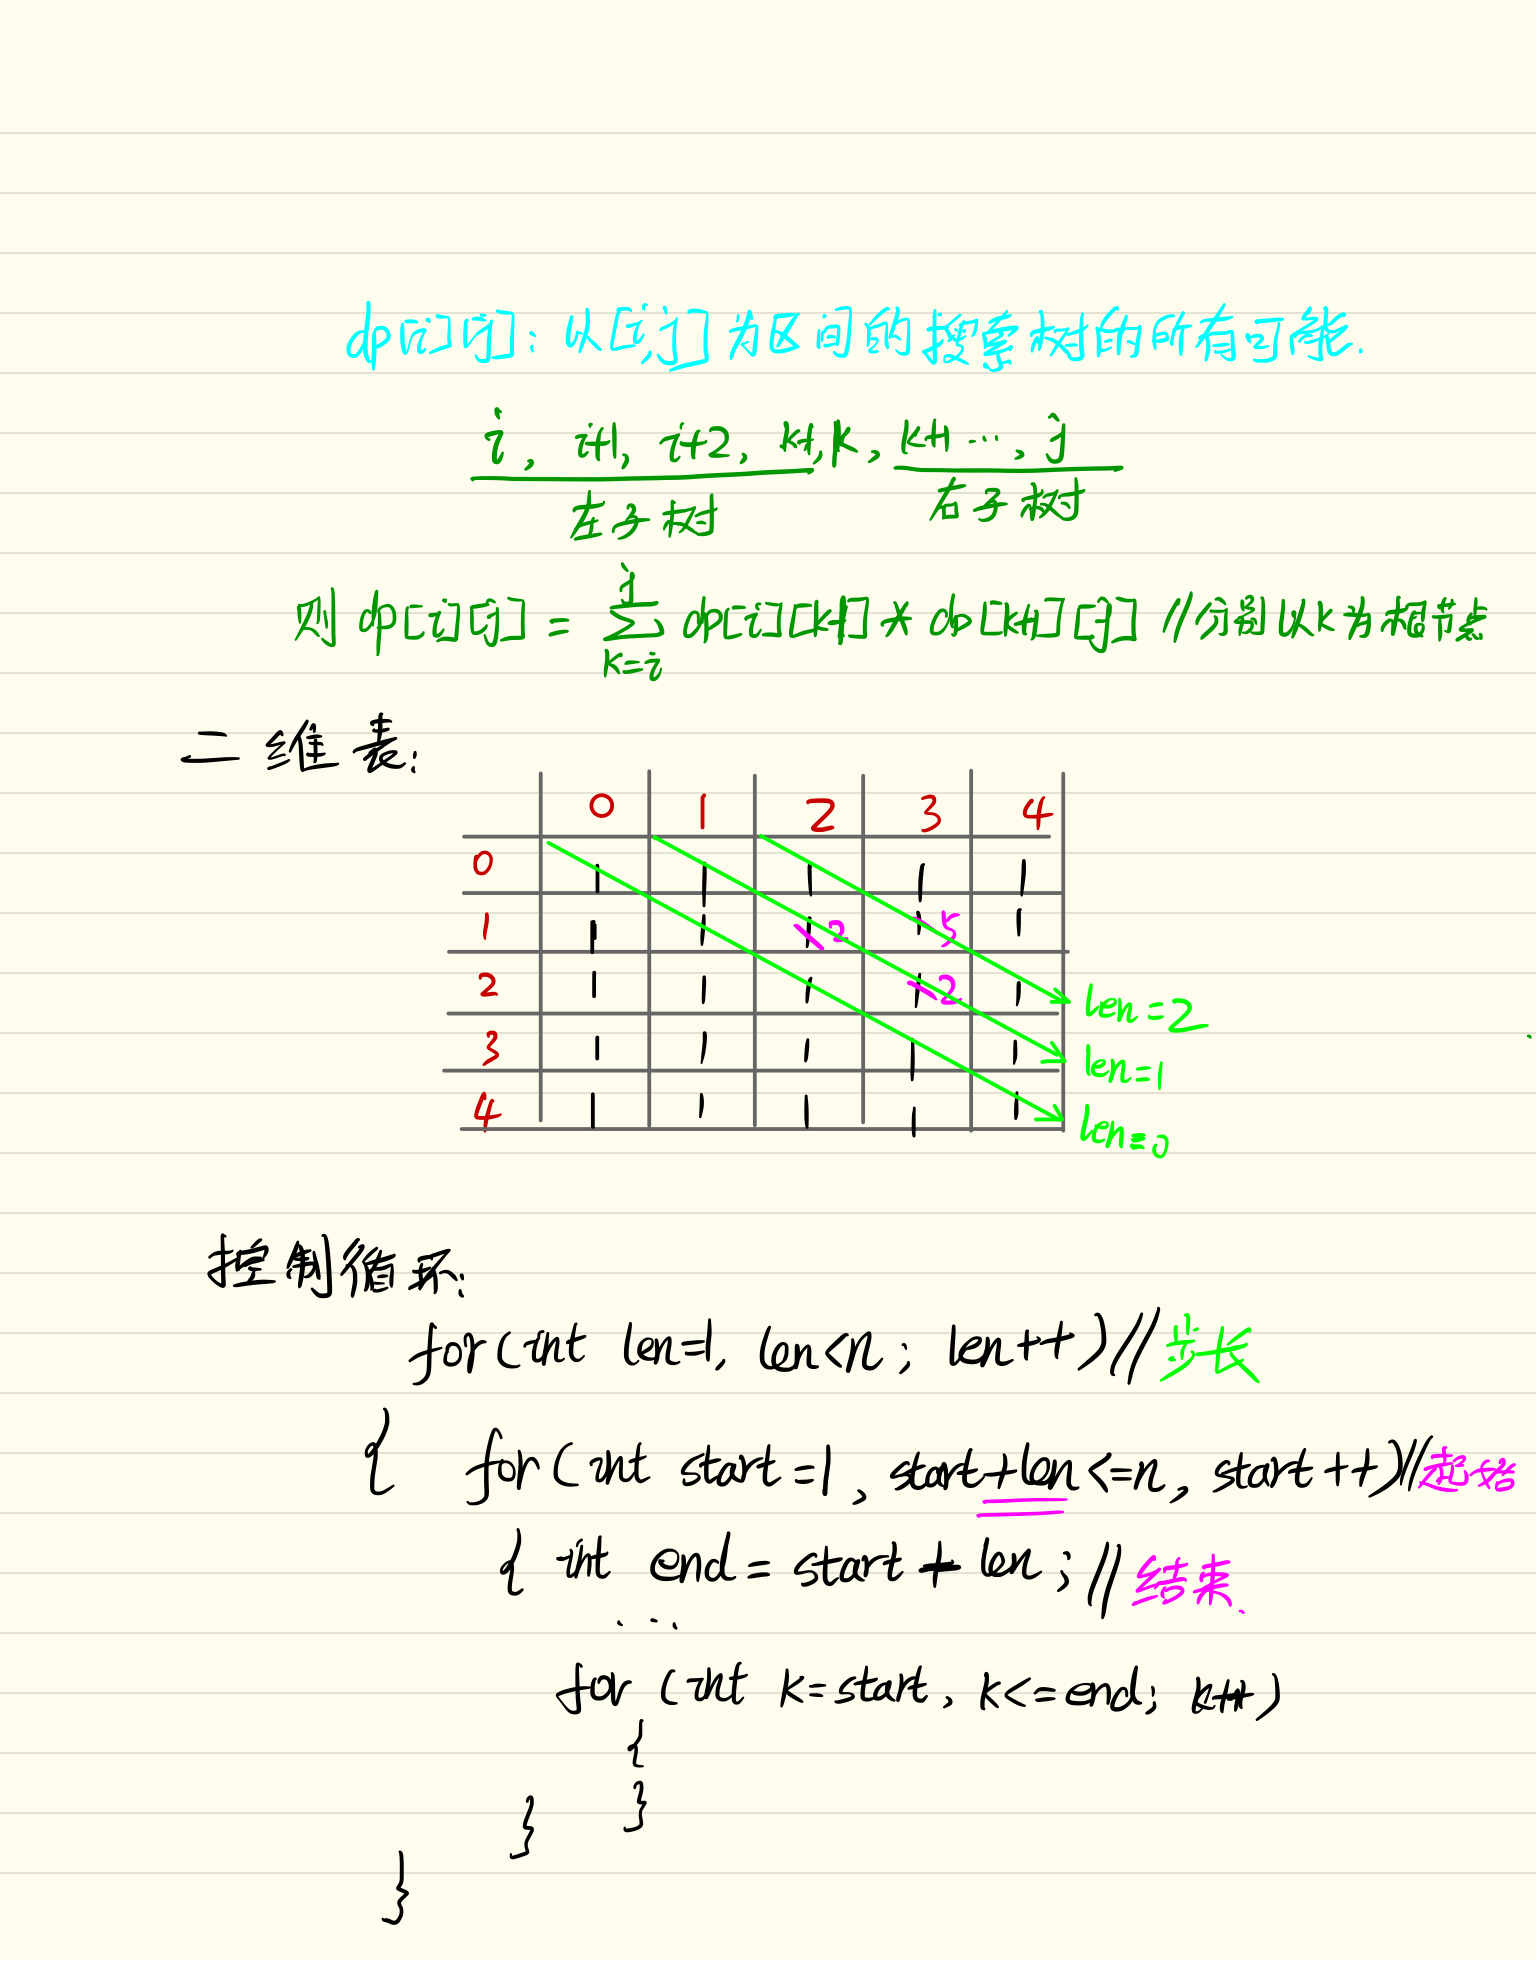 dp[i][j]: 以[i,j]为区间的搜索树的所有可能.
i, i+1, i+2, k-1, k, k+1 …, j
左子树 右子树
则 dp[i][j] = ∑ dp[i][k-1] * dp[k+1][j] //分别以k为根节点
j
k=i
二维表:
0 1 2 3 4
0 1 1 1 1 1
1 1 1 1 2 1 5 1
2 1 1 1 1 2 1
len=2
3 1 1 1 1 1
len=1
4 1 1 1 1 1
len=0
控制循环:
for(int len=1, len<n; len++)//步长
{ for(int start=1, start+len<=n, start++)//起始
{ int end = start + len; //结束.
...
for (int k=start, k<=end; k++)
{
}
}
}